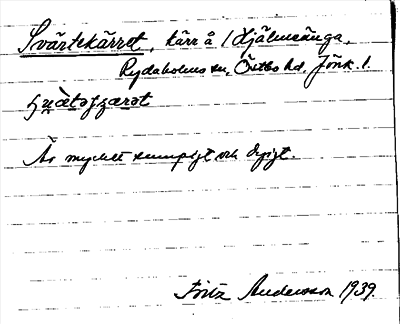 Svärtekärret, kärr å Hjälmsänga,
Rydaholms sn, Östbo hd, Jönk. l.
Är mycket sumpigt och dyigt.
Fritz Andersson 1939.